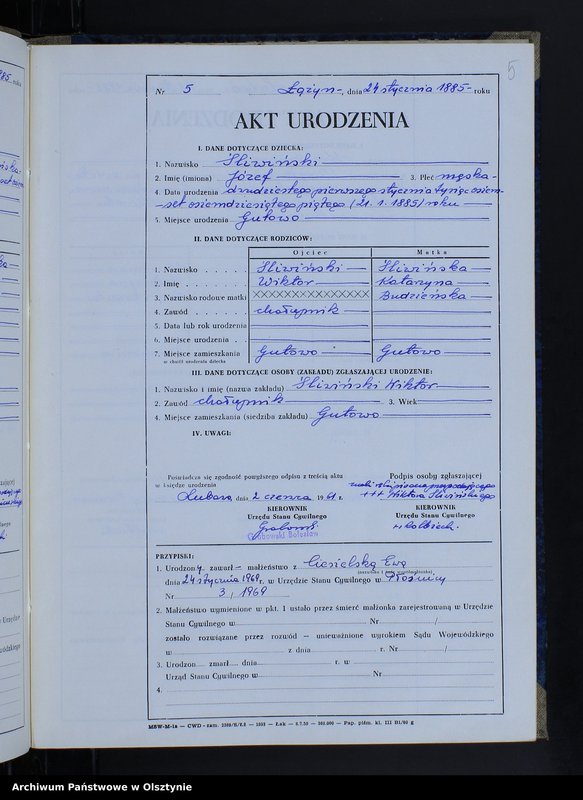 5
Nr 5 Łążyn-, dnia 24 stycznia 1885- roku
AKT URODZENIA
I. DANE DOTYCZĄCE DZIECKA:
1. Nazwisko Śliwiński
2. Imię (imiona) Józef 3. Płeć męska-
4. Data urodzenia dwudziestego pierwszego stycznia tysiąc osiem-
-set osiemdziesiątego piątego (21. 1. 1885) roku
5. Miejsce urodzenia Gutowo
II. DANE DOTYCZĄCE RODZICÓW:
Ojciec Matka
1. Nazwisko Śliwiński Śliwińska
2. Imię Wiktor Katarzyna
3. Nazwisko rodowe matki XXXXXXXXXXXXXXXX Budzieńska
4. Zawód chałupnik
5. Data lub rok urodzenia
6. Miejsce urodzenia
7. Miejsce zamieszkania Gutowo Gutowo
w chwili urodzenia dziecka
III. DANE DOTYCZĄCE OSOBY (ZAKŁADU) ZGŁASZAJĄCEJ URODZENIE:
1. Nazwisko i imię (nazwa zakładu) Śliwiński Wiktor
2. Zawód chałupnik 3. Wiek
4. Miejsce zamieszkania (siedziba zakładu) Gutowo
IV. UWAGI:
Poświadcza się zgodność powyższego odpisu z treścią aktu
w księdze urodzenia
Podpis osoby zgłaszającej
+++ Wiktora Śliwińskiego
dnia 2 czerwca 1961 r.
KIEROWNIK
Urzędu Stanu Cywilnego
Grabowski Bolesław
KIEROWNIK
Urzędu Stanu Cywilnego
PRZYPISKI:
1. Urodzony zawarł — małżeństwo z Ciesielską Ewą
(nazwisko i imię współmałżonka)
dnia 24 stycznia 1969 r. w Urzędzie Stanu Cywilnego w Płośnicy
Nr 3 / 1969
2. Małżeństwo wymienione w pkt. 1 ustało przez śmierć małżonka zarejestrowaną w Urzędzie
Stanu Cywilnego w Nr /
zostało rozwiązane przez rozwód — unieważnione wyrokiem Sądu Wojewódzkiego
w z dnia r. Nr /
3. Urodzon zmarł dnia r. w
Urząd Stanu Cywilnego w Nr
4.
Archiwum Państwowe w Olsztynie